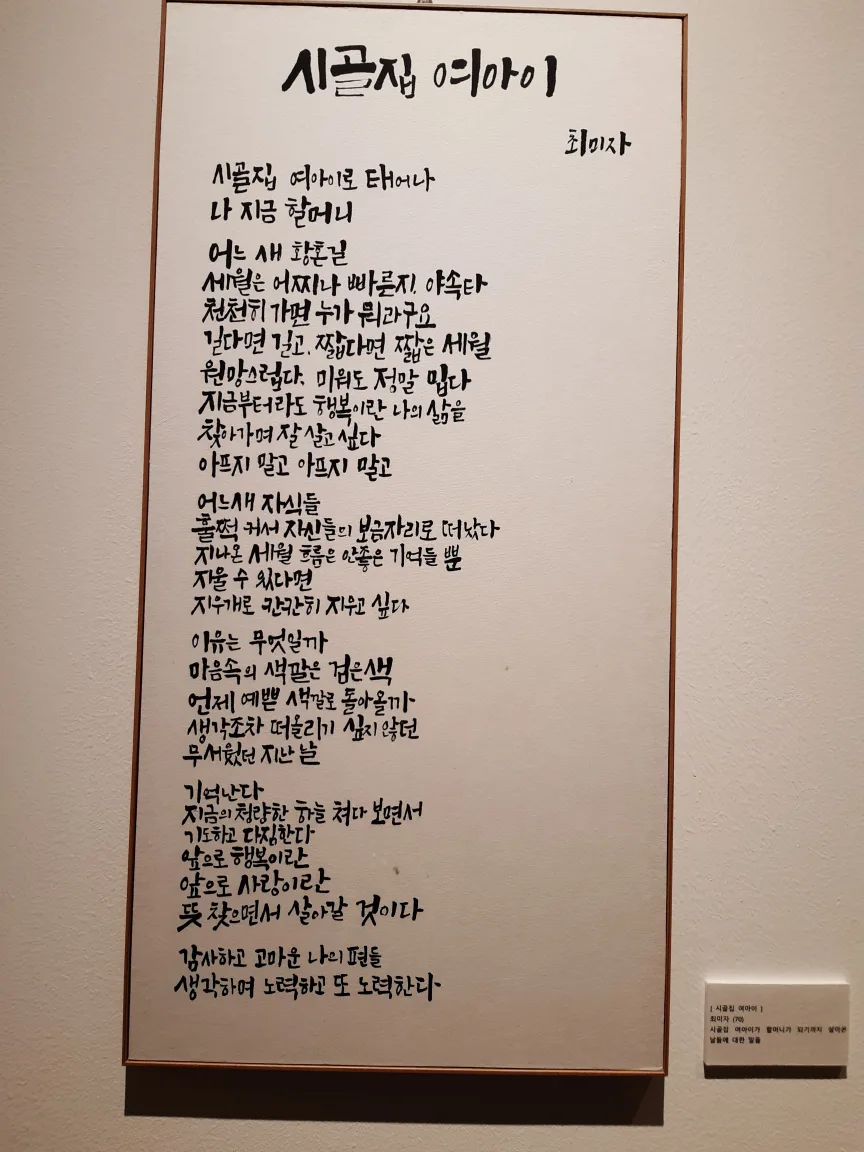 시골집 여아이
최미자
시골집 여아이로 태어나
나 지금 할머니
어느 새 황혼길
세월은 어찌나 빠른지. 야속타
천천히 가면 누가 뭐라구요
길다면 길고. 짧다면 짧은 세월
원망스럽다. 미워도 정말 밉다
지금부터라도 행복이란 나의 삶을
찾아가며 잘 살고 싶다
아프지 말고 아프지 말고
어느새 자식들
훌쩍 커서 자신들의 보금자리로 떠났다
지나온 세월 흐름은 안좋은 기억들 뿐
지울 수 있다면
지우개로 칸칸히 지우고 싶다
이유는 무엇일까
마음속의 색깔은 검은색
언제 예쁜 색깔로 돌아올까
생각조차 떠올리기 싫지 않던
무서웠던 지난 날
기억난다
지금의 청량한 하늘 쳐다 보면서
기도하고 다짐한다
앞으로 행복이란
앞으로 사랑이란
뜻 찾으면서 살아갈 것이다
감사하고 고마운 나의 편들
생각하며 노력하고 또 노력한다
[ 시골집 여아이 ]
최미자 (70)
시골집 여아이가 할머니가 되기까지 살아온
날들에 대한 말들